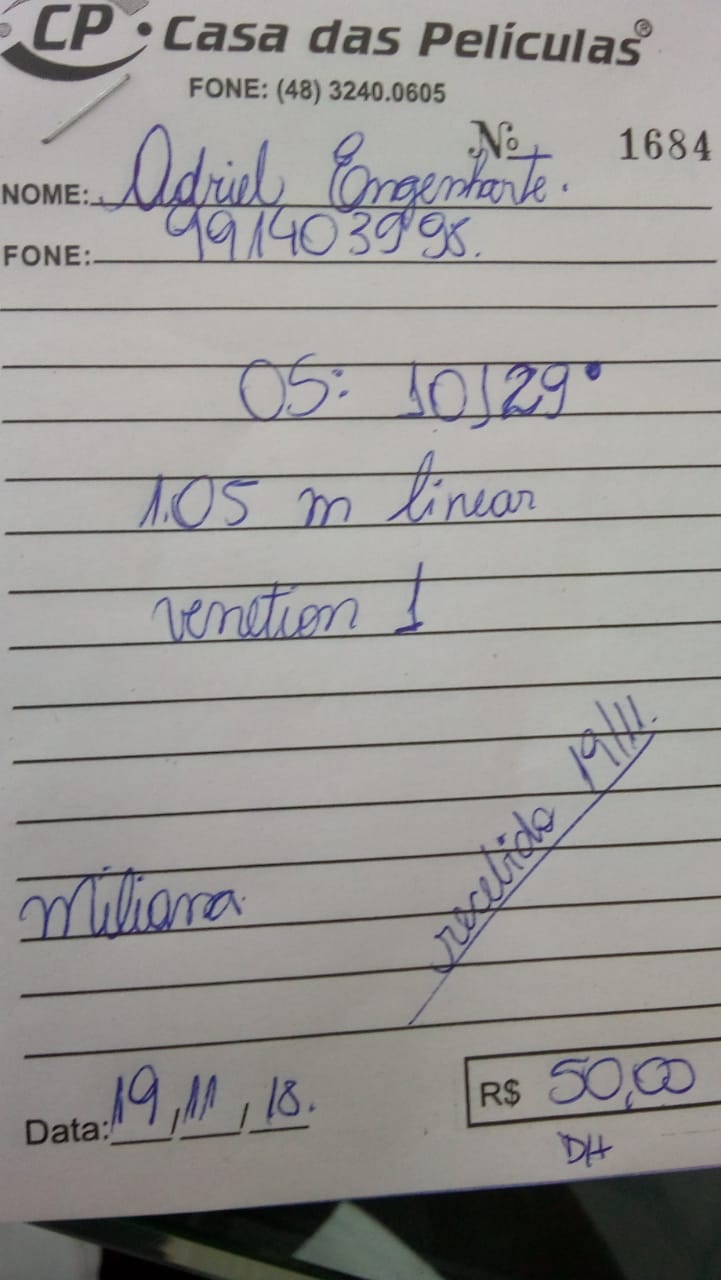 CP • Casa das Películas®
FONE: (48) 3240.0605
Nº 1684
NOME: Adriel Engenharte.
FONE: 991403998.
OS: 10129
1.05 m linear
venetion 1
recebido 19/11.
Miliana
Data: 19, 11, 18.
R$ 50,00
DH